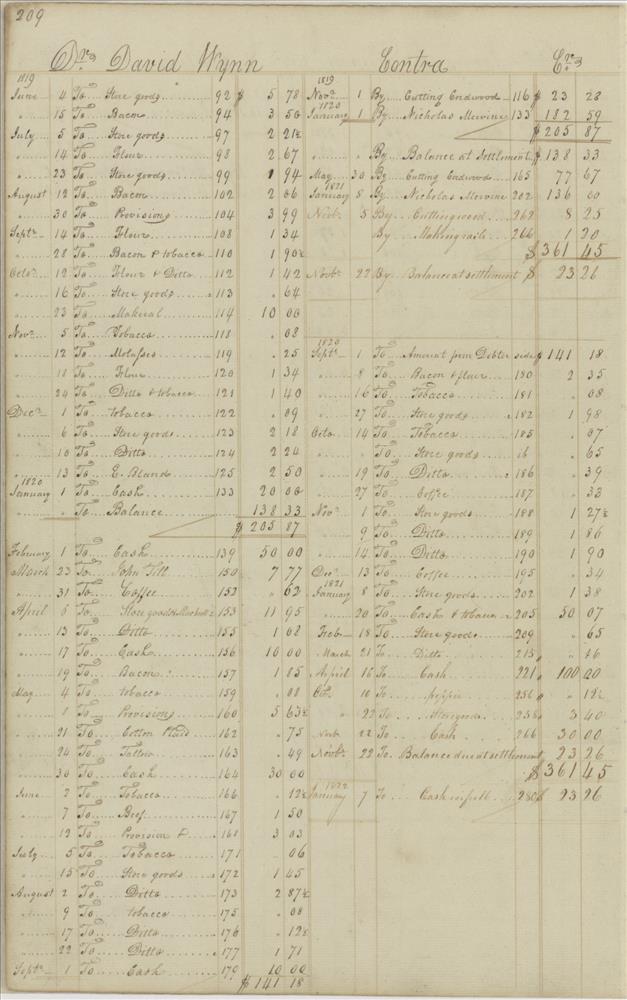 209
Drs David Wynn
1819
June 4 To Store goods 92 $ 5 78
" 15 To Bacon 94 3 50
July 5 To Store goods 97 2 21½
" 14 To Flour 98 2 67
" 23 To Store goods 99 1 94
August 12 To Bacon 102 2 06
" 30 To Provisions 104 3 99
Septr 14 To Flour 108 1 34
" 28 To Bacon & tobacco 110 1 90½
Octor 12 To Flour & Ditto 112 1 42
" 16 To Store goods 113 " 64
" 23 To 114 10 00
Novr 5 To Tobacco 118 " 08
" 12 To Molasses 119 " 25
" 18 To Flour 120 1 34
" 24 To Ditto & tobacco 121 1 40
Decr 1 To tobacco 122 " 09
" 6 To Store goods 123 2 18
" 10 To Ditto 124 2 24
" 13 To E. Bland 125 2 50
1820
January 1 To Cash 133 20 00
" " To Balance 138 33
$ 205 87
February 1 To Cash 139 50 00
March 23 To John Till 150 7 77
" 31 To Coffee 152 " 62
April 6 To Store goods 153 11 95
" 13 To Ditto 155 1 08
" 17 To Cash 156 10 00
" 19 To Bacon 157 1 85
May 4 To tobacco 159 " 08
" 8 To Provisions 160 5 63½
" 21 To Cotton Plaid 162 " 75
" 24 To Tallow 163 " 49
" 30 To Cash 164 30 00
June 2 To Tobacco 166 " 12½
" 7 To Beef 167 1 50
" 12 To Provision & 168 3 03
July 5 To Tobacco 171 " 06
" 15 To Store goods 172 1 45
August 2 To Ditto 173 2 87½
" 9 To tobacco 175 " 08
" 17 To Ditto 176 " 12½
" 22 To Ditto 177 1 71
Septr 1 To Cash 179 10 00
$ 141 18
Contra Crs
1819
Novr 1 By Cutting Cordwood 116 $ 23 28
1820
January 1 By Nicholas Mervine 133 182 59
$ 205 87
" " By Balance at Settlement $ 138 33
May 30 By Cutting Cordwood 165 77 67
1821
January 8 By Nicholas Mervine 202 136 00
Novbr 5 By Cutting wood 262 8 25
By Making rails 266 1 20
$ 361 45
Novbr 22 By Balance at settlement $ 23 26
1820
Septr 1 To Amount from Debtor side $ 141 18
" 8 To Bacon & flour 180 2 35
" 16 To Tobacco 181 " 08
" 27 To Store goods 182 1 98
Octo 14 To Tobacco 185 " 07
" " To Store goods ib " 65
" 19 To Ditto 186 " 39
" 27 To Coffee 187 " 33
Novr 1 To Store goods 188 1 27½
" 9 To Ditto 189 1 86
" 14 To Ditto 190 1 90
Decr 13 To Coffee 195 " 34
1821
January 8 To Store goods 202 1 38
" 20 To Cash & tobacco 205 50 07
Feb 18 To Store goods 209 " 65
March 21 To Ditto 215 " 16
April 16 To Cash 221 100 00
Oct. 10 To pepper 256 " 12½
" 22 To Store goods 258 3 40
Novb 22 To Cash 266 30 00
Novbr 22 To Balance due at settlement 23 26
$ 361 45
1822
January 7 To Cash in full 280 $ 23 26